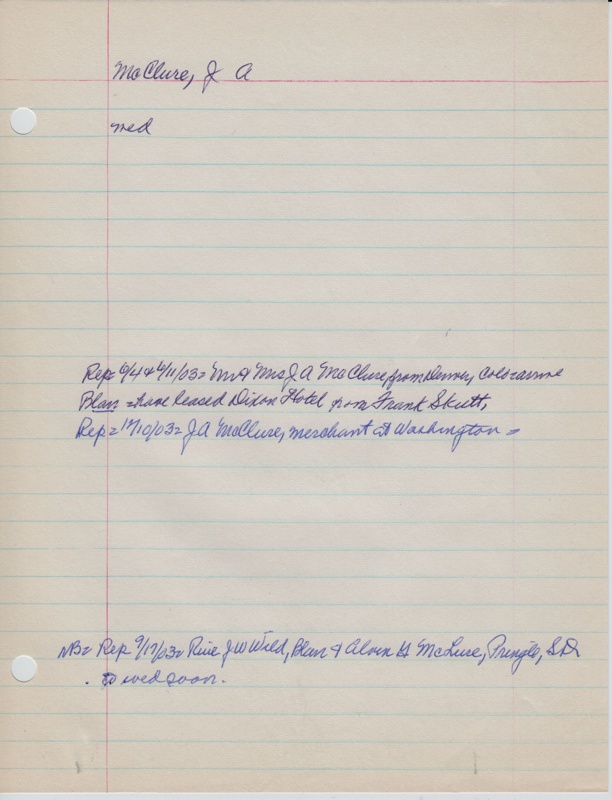 McClure, J A
med
Rep= 6/4 & 6/11/03= Mr & Mrs J. A McClure from Denver, Colo=arrive
Blan =have leased Dixon Hotel from Frank Skutt,
Rep= 12/10/03= J A McClure, merchant at Washington =
NB= Rep 9/17/03= J W Weld, Blan & Alven G McLure, Pringle, S.D.
. to wed soon.